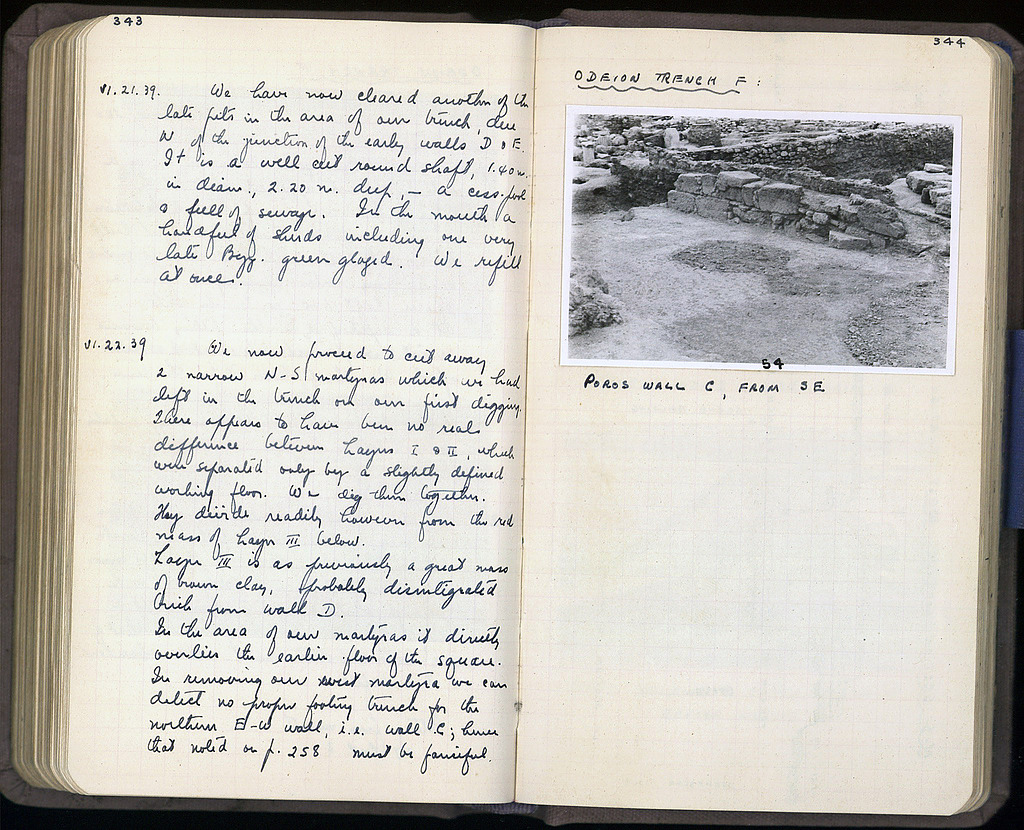 343
VI.21.39. We have now cleared another of the
late pits in the area of our trench, due
W of the junction of the early walls D & E.
It is a well cut round shaft, 1.40 m.
in diam., 2.20 m. deep, – a cess-pool
& full of sewage. In the mouth a
handful of sherds including one very
late Byz. green glazed. We refill
at once.
VI.22.39 We now proceed to cut away
2 narrow N-S martyras which we had
left in the trench on our first digging.
There appears to have been no real
difference between Layers I & II, which
were separated only by a slightly defined
working floor. We dig them together.
They divide readily however from the red
mass of Layer III below.
Layer III is as previously a great mass
of brown clay, probably disintegrated
brick from wall D.
In the area of our martyras it directly
overlies the earlier floor of the square.
In removing our west martyra we can
detect no proper footing trench for the
northern E-W wall, i.e. wall C; hence
that noted on p. 258 must be fanciful.
344
ODEION TRENCH F:
54
POROS WALL C, FROM SE